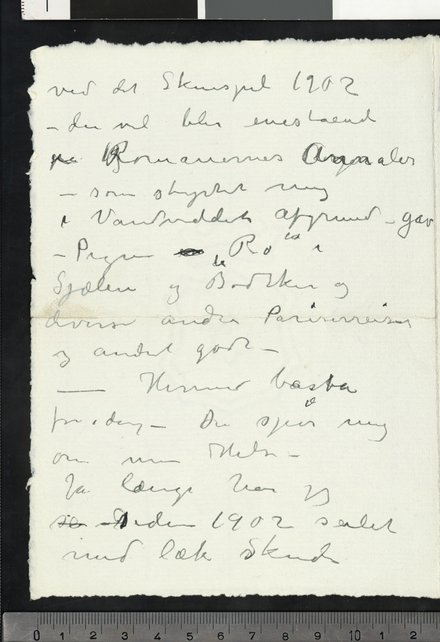 ved det Skuespil 1902
– der vil blive enestaaende
i Romanernes Annaler
– som styrtet mig
i Vanviddets afgrund – gav
– Pigen "Ro" i
Sjælen og Bødtker og
diverse andre Pariserreiser
og andet godt –
— Hermed basta
for idag – Du spør mig
om min Helse –
Ja længe har jeg
siden 1902 seilet
med læk Skude